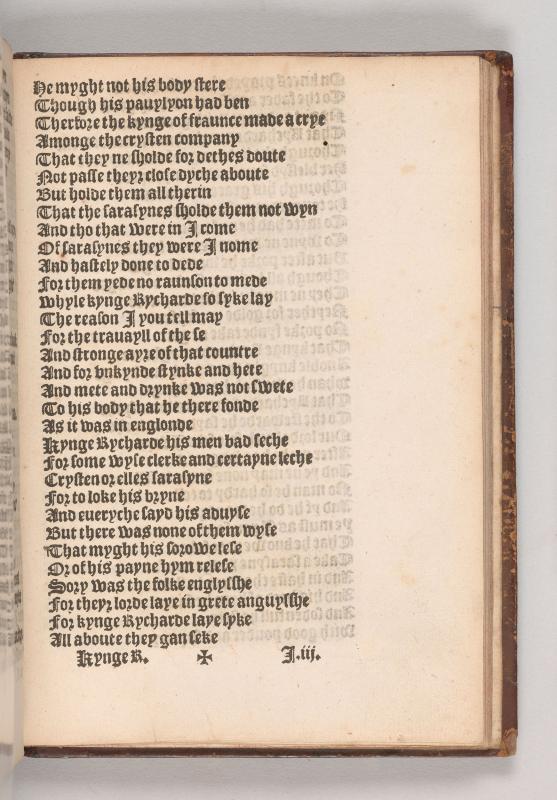 He myght not his body stere
Though his pauylyon had ben
Therfore the kynge of fraunce made a crye
Amonge the crysten company
That they ne sholde for dethes doute
Not passe theyr close dyche aboute
But holde them all therin
That the sarasynes sholde them not wyn
And tho that were in I come
Of sarasynes they were I nome
And hastely done to dede
For them yede no raunson to mede
whyle kynge Rycharde so syke lay
The reason I you tell may
For the trauayll of the se
And stronge ayre of that countre
And for vnkynde stynke and hete
And mete and drynke was not swete
To his body that he there fonde
As it was in englonde
Kynge Rycharde his men bad seche
For some wyse clerke and certayne leche
Crysten or elles sarasyne
For to loke his vryne
And eueryche sayd his aduyse
But there was none of them wyse
That myght his sorowe lese
Or of his payne hym relese
Sory was the folke englysshe
For theyr lorde laye in grete anguysshe
For kynge Rycharde laye syke
All aboute they gan seke
Kynge R. ✠ I.iij.